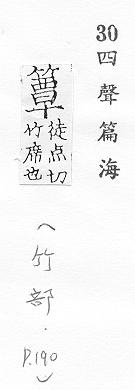 30四聲篇海
簟徒点切
竹席也
(竹部·
P.190)